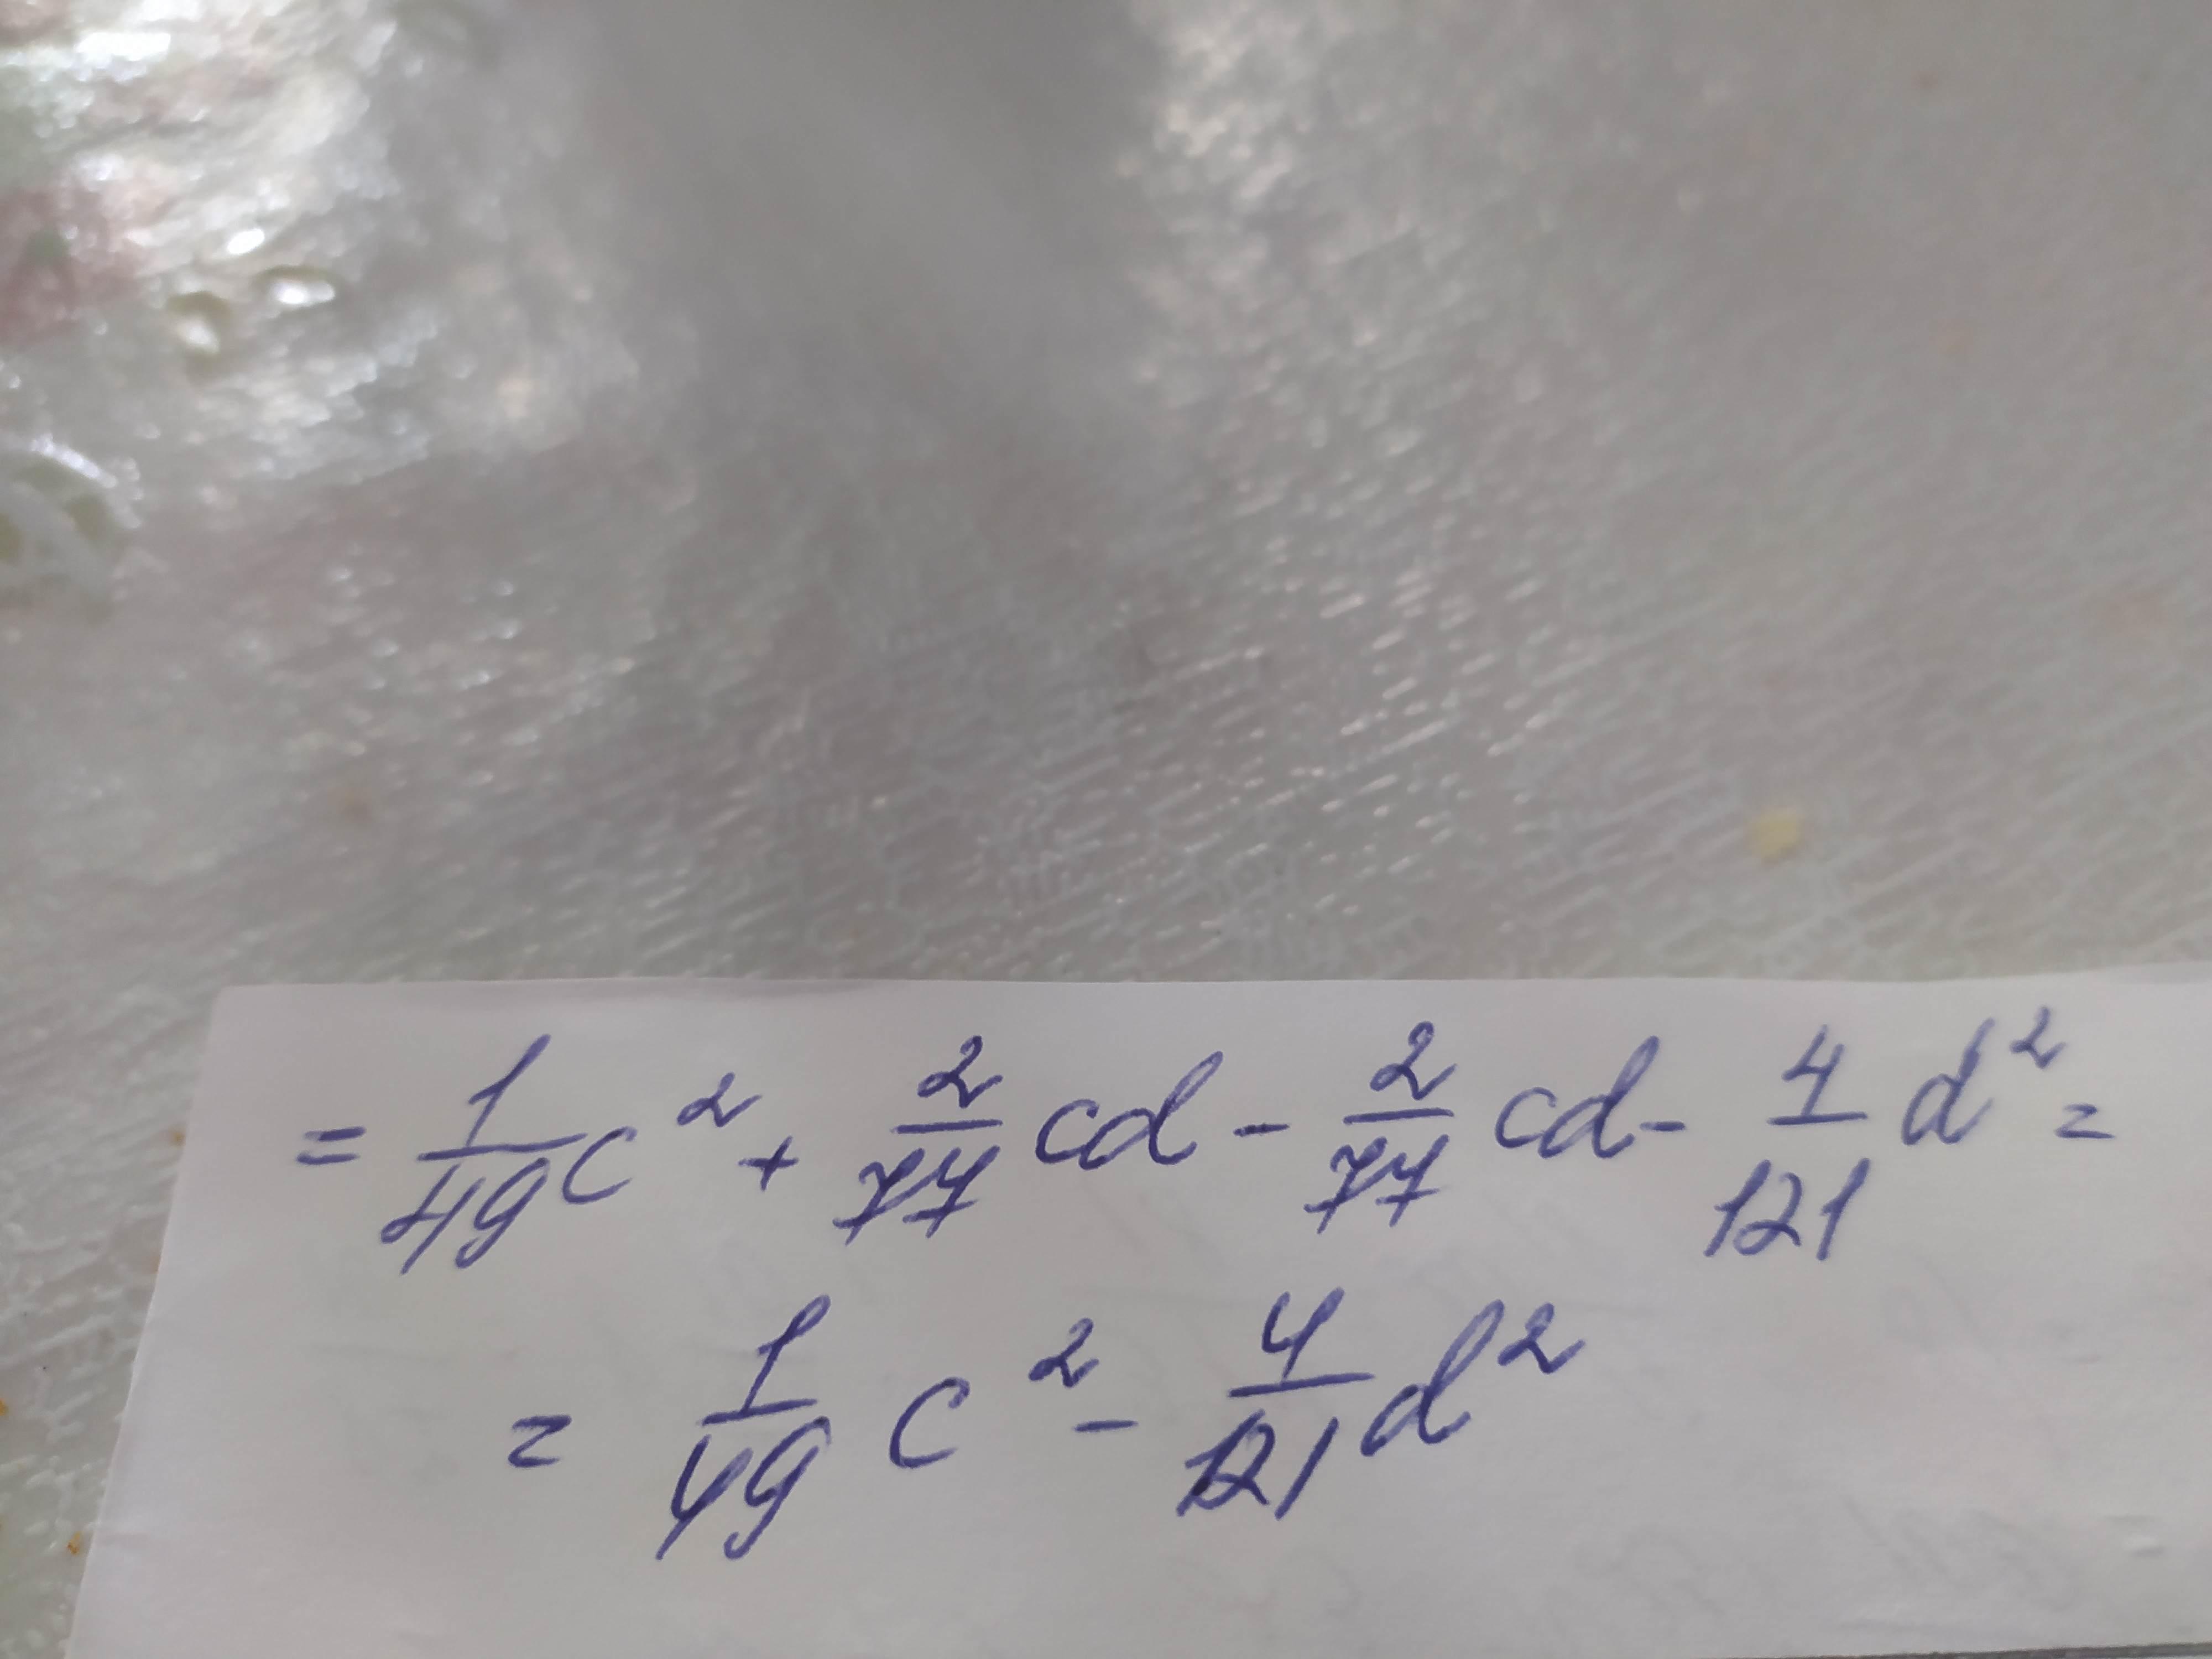 = 1/49 c² + 2/77 cd - 2/77 cd - 4/121 d² =
= 1/49 c² - 4/121 d²